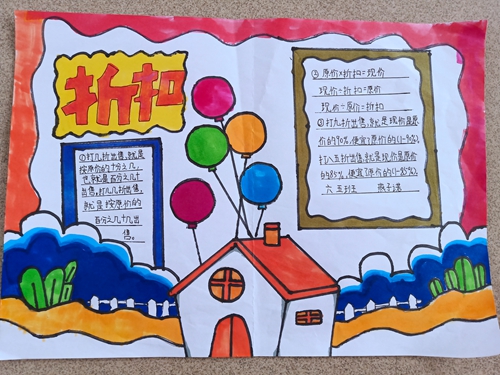 折扣
①打几折出售,就是
按原价的十分之几,
也就是百分之几十
出售,打几几折出售,
就是按原价的
百分之几十几出
售。
②原价×折扣=现价
现价÷折扣=原价
现价÷原价=折扣
③打九折出售,就是现价是原
价的90%,便宜了原价的(1-90%),
打八五折出售,就是现价是原价
的85%,便宜了原价的(1-85%),
六 五班